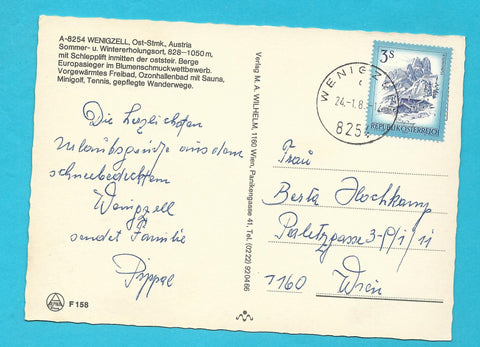 A-8254 WENIGZELL, Ost-Stmk., Austria
Sommer- u. Wintererholungsort, 828–1050 m,
mit Schlepplift inmitten der oststeir. Berge
Europasieger im Blumenschmuckwettbewerb.
Vorgewärmtes Freibad, Ozonhallenbad mit Sauna,
Minigolf, Tennis, gepflegte Wanderwege.
Die herzlichsten
Urlaubsgrüße aus dem
schneebedeckten
Wenigzell
sendet Familie
F 158
Verlag M. A. WILHELM, 1160 Wien, Panikengasse 41, Tel. (0222) 92 04 66
3 S
REPUBLIK ÖSTERREICH
WENIGZ
24.-1.8
8254
Frau
Berta Hochkamp
1160 Wien